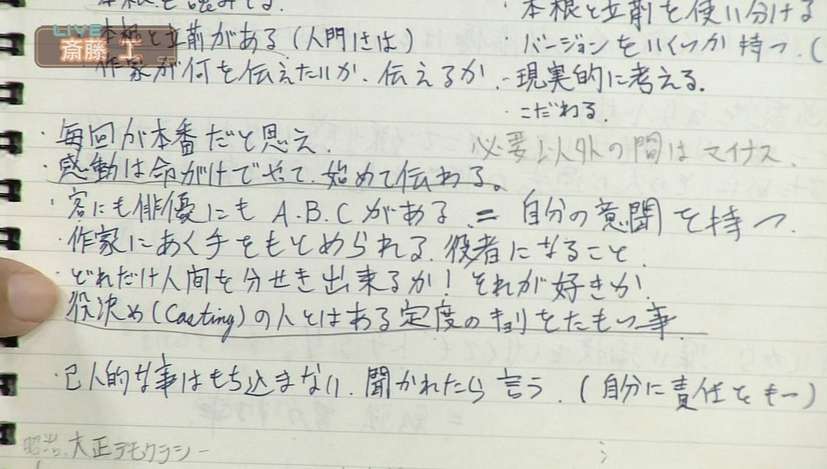 LIVE
斎藤 工
本根と立前がある(人間には)
作家が何を伝えたいか、伝えるか、
・毎回が本番だと思え、
・感動は命がけでやって、始めて伝わる。
・客にも俳優にも A.B.C がある = 自分の意聞を持つ.
・作家にあく手をもとめられる、役者になること、
・どれだけ人間を分せき出来るか!それが好きか、
・役決め(Casting)の人とはある定度のキョリをたもつ事
・己人的な事はもち込まない、聞かれたら言う、(自分に責任をもつ)
大正デモクラシー
・本根と立前を使い分ける
・バージョンをいくつか持つ、(
・現実的に考える。
・こだわる。
必要以外の間はマイナス、